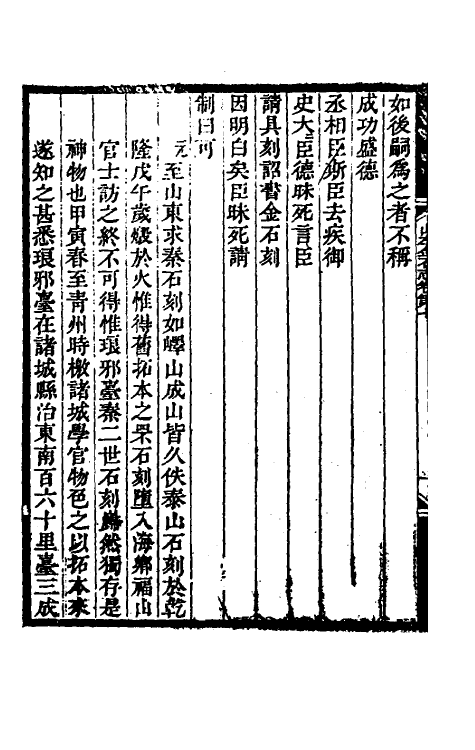 如後嗣為之者不稱
成功盛德
丞相臣斯臣去疾御
史大臣德昧死言臣
請具刻詔書金石刻
因明白矣臣昧死請
制曰可
元至山東求秦石刻如嶧山成山皆久佚泰山石刻於乾
隆戊午歲燬於火惟得舊拓本之罘石刻墮入海鄉福山
官士訪之終不可得惟琅邪臺秦二世石刻巋然獨存是
神物也甲寅春至青州時檄諸城學官物色之以拓本來
遂知之甚悉琅邪臺在諸城縣治東南百六十里臺三成